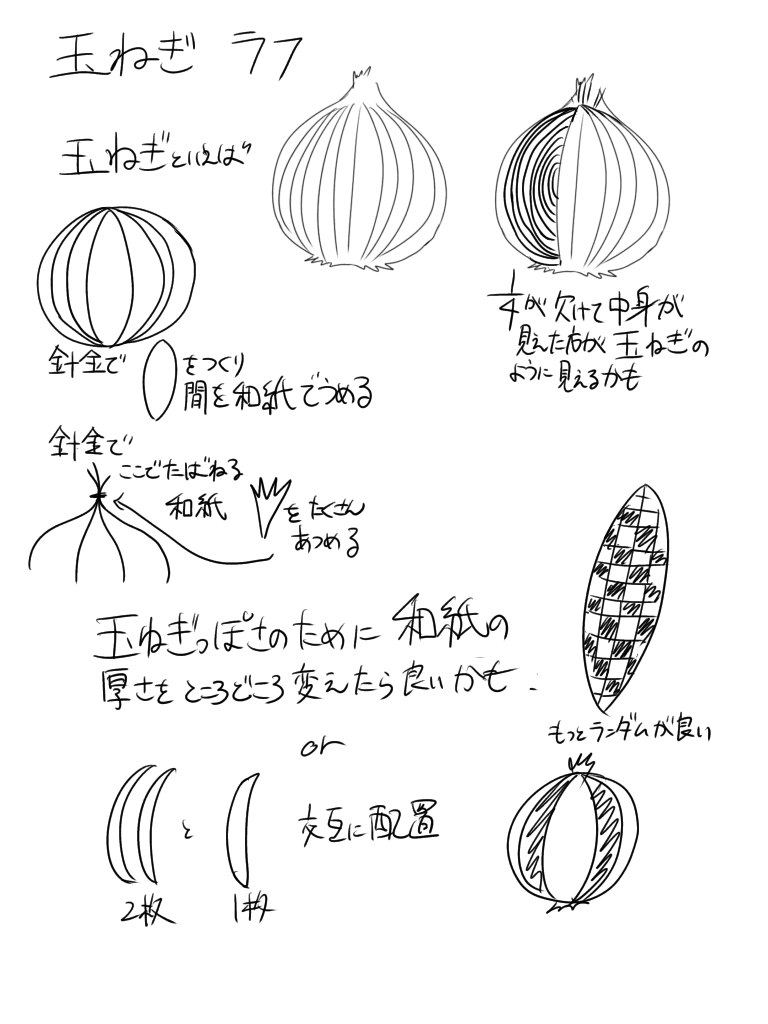 玉ねぎ ラフ
玉ねぎといえば
1/4が欠けて中身が
見えた方が玉ねぎの
ように見えるかも
針金で
をつくり
間を和紙でうめる
針金で
ここでたばねる
和紙
をたくさん
あつめる
玉ねぎっぽさのために和紙の
厚さをところどころ変えたら良いかも.
もっとランダムが良い
or
と
交互に配置
2枚
1枚